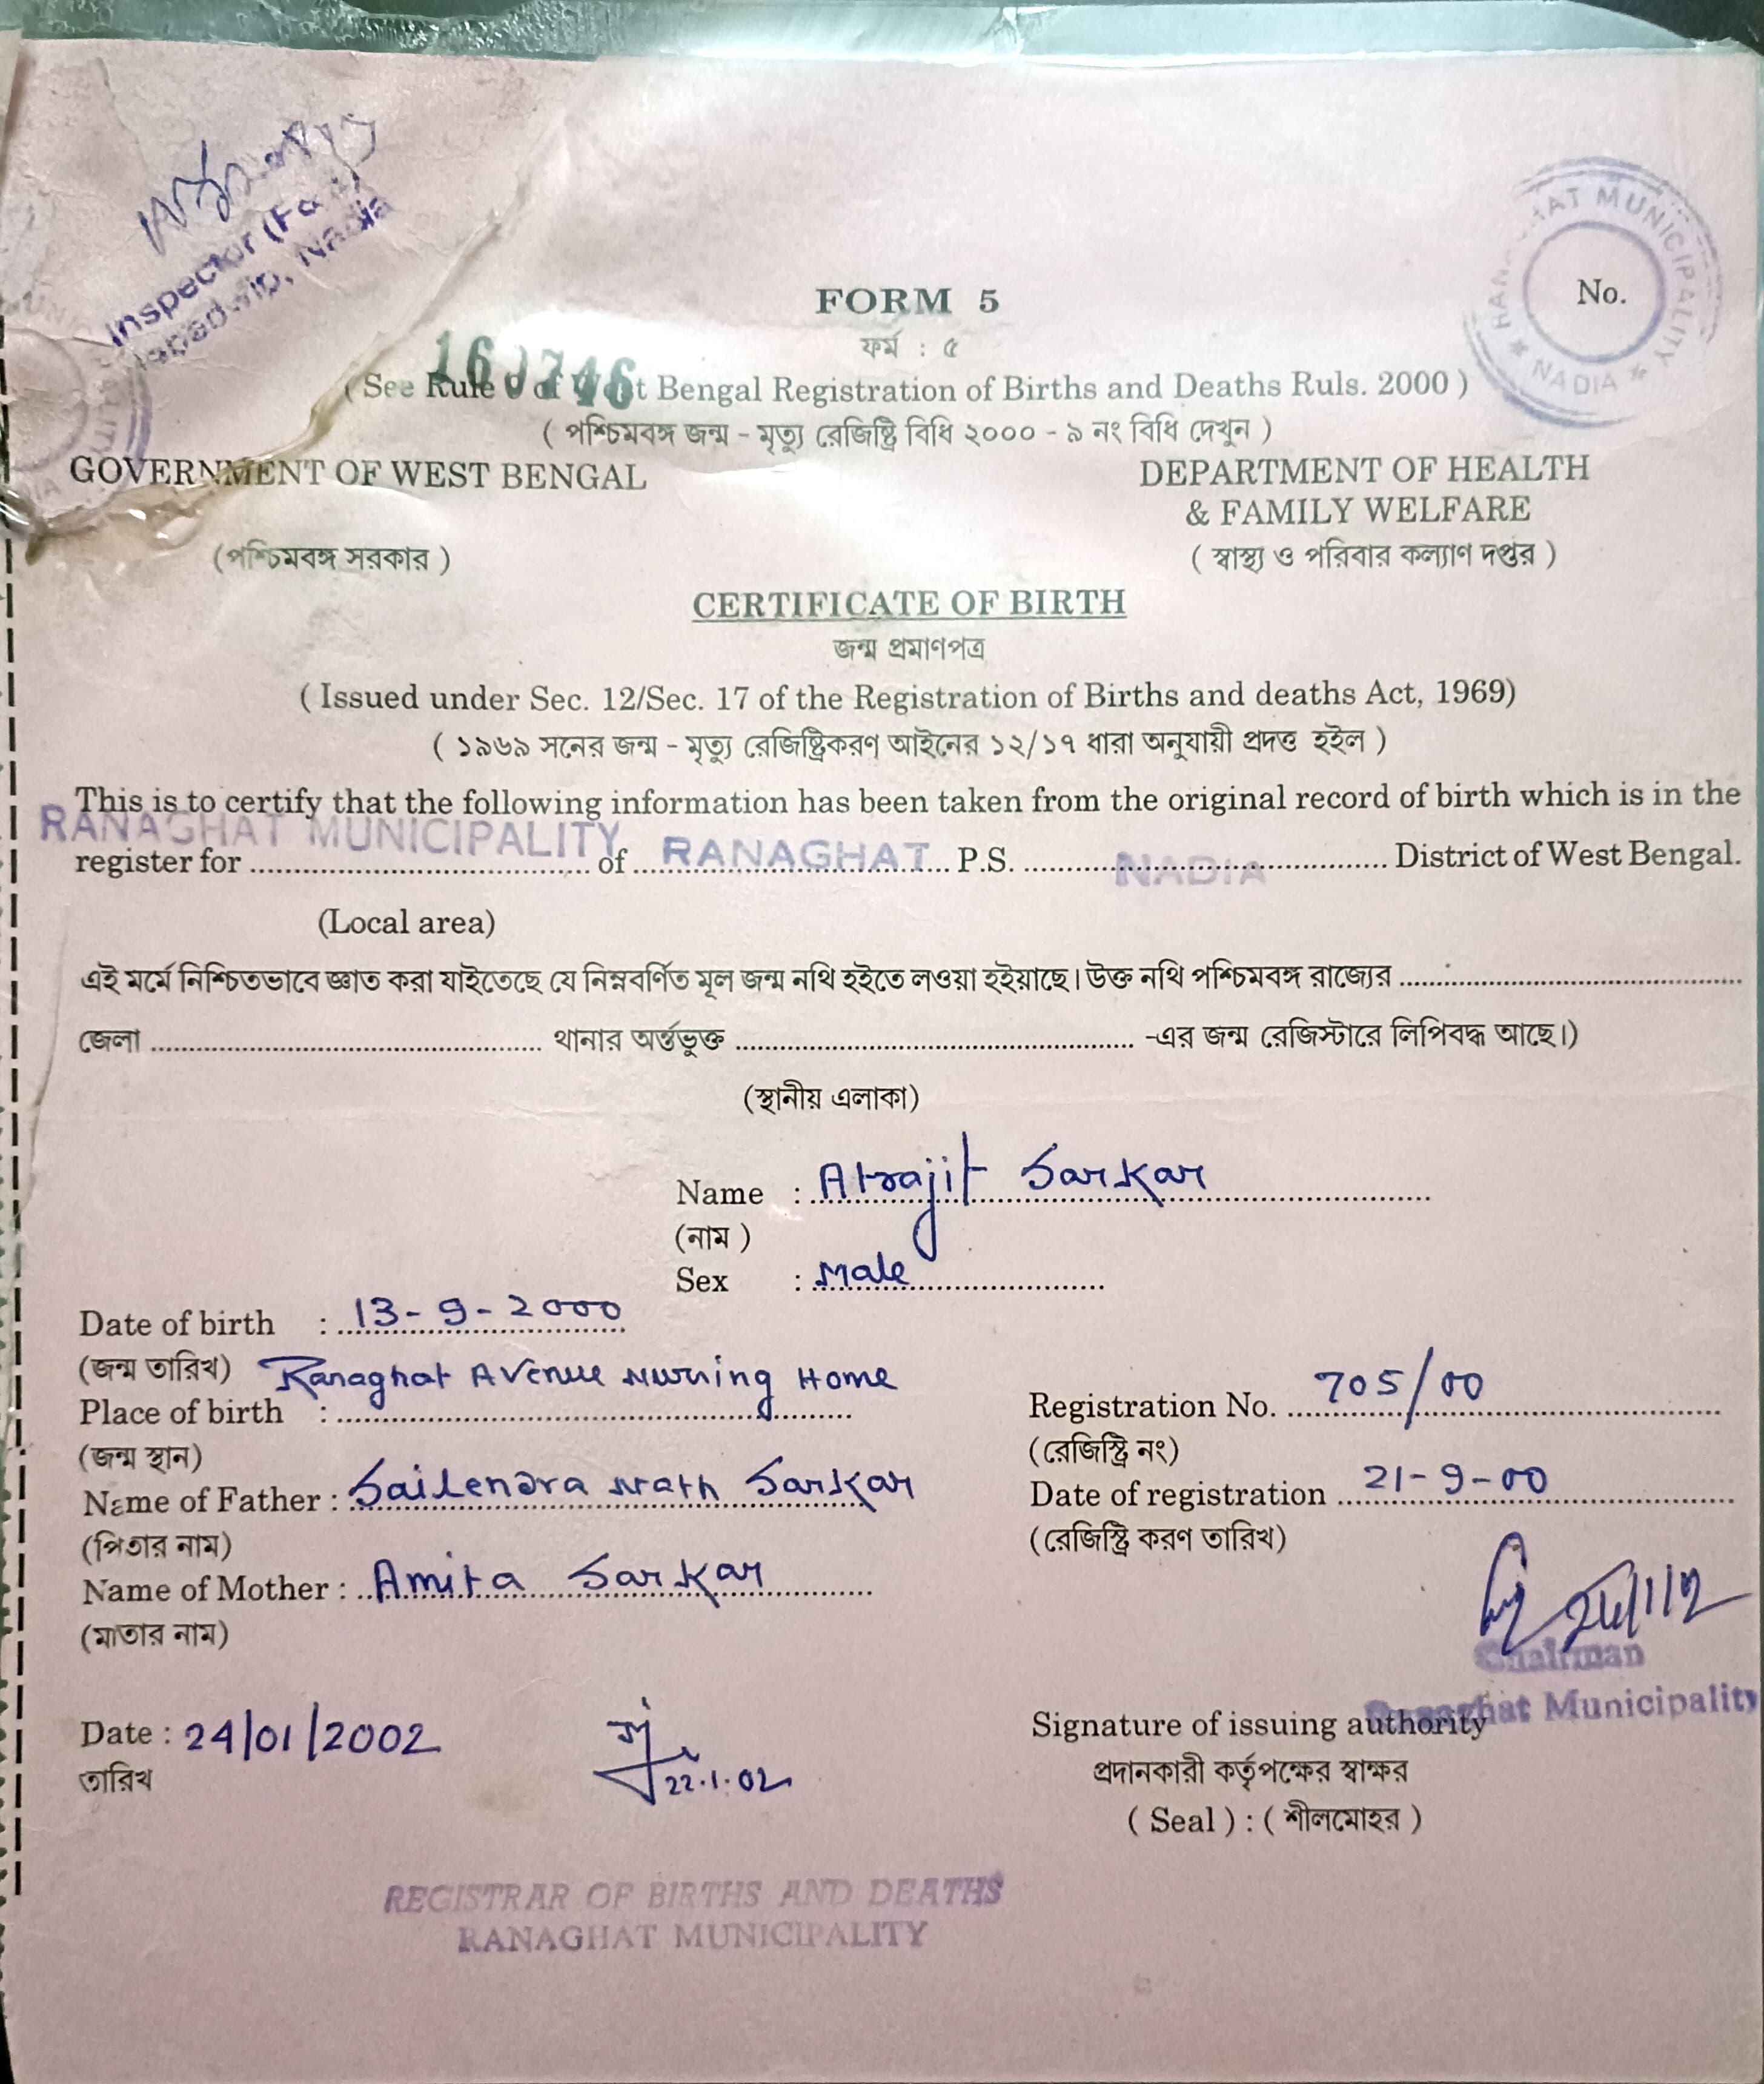 Inspector (Fo
Nabadwip, Nadia
RANAGHAT MUNICIPALITY
★ NADIA ★
No.
FORM 5
ফর্ম : ৫
160746
( See Rule 9 of West Bengal Registration of Births and Deaths Ruls. 2000 )
( পশ্চিমবঙ্গ জন্ম - মৃত্যু রেজিষ্ট্রি বিধি ২০০০ - ৯ নং বিধি দেখুন )
GOVERNMENT OF WEST BENGAL
(পশ্চিমবঙ্গ সরকার )
DEPARTMENT OF HEALTH
& FAMILY WELFARE
( স্বাস্থ্য ও পরিবার কল্যাণ দপ্তর )
CERTIFICATE OF BIRTH
জন্ম প্রমাণপত্র
( Issued under Sec. 12/Sec. 17 of the Registration of Births and deaths Act, 1969)
( ১৯৬৯ সনের জন্ম - মৃত্যু রেজিষ্ট্রিকরণ আইনের ১২/১৭ ধারা অনুযায়ী প্রদত্ত হইল )
This is to certify that the following information has been taken from the original record of birth which is in the
register for RANAGHAT MUNICIPALITY of RANAGHAT P.S. NADIA District of West Bengal.
(Local area)
এই মর্মে নিশ্চিতভাবে জ্ঞাত করা যাইতেছে যে নিম্নবর্ণিত মূল জন্ম নথি হইতে লওয়া হইয়াছে। উক্ত নথি পশ্চিমবঙ্গ রাজ্যের ..........
জেলা .......... থানার অর্ন্তভুক্ত .......... -এর জন্ম রেজিস্টারে লিপিবদ্ধ আছে।)
(স্থানীয় এলাকা)
Name : Atrajit Sarkar
(নাম )
Sex : Male
Date of birth : 13-9-2000
(জন্ম তারিখ)
Place of birth : Ranaghat Avenue Nursing Home
(জন্ম স্থান)
Name of Father : Sailendra Nath Sarkar
(পিতার নাম)
Name of Mother : Amita Sarkar
(মাতার নাম)
Registration No. 705/00
(রেজিস্ট্রি নং)
Date of registration 21-9-00
(রেজিস্ট্রি করণ তারিখ)
Chairman
Ranaghat Municipality
Date : 24/01/2002
তারিখ
22.1.02
Signature of issuing authority
প্রদানকারী কর্তৃপক্ষের স্বাক্ষর
( Seal ) : ( শীলমোহর )
REGISTRAR OF BIRTHS AND DEATHS
RANAGHAT MUNICIPALITY